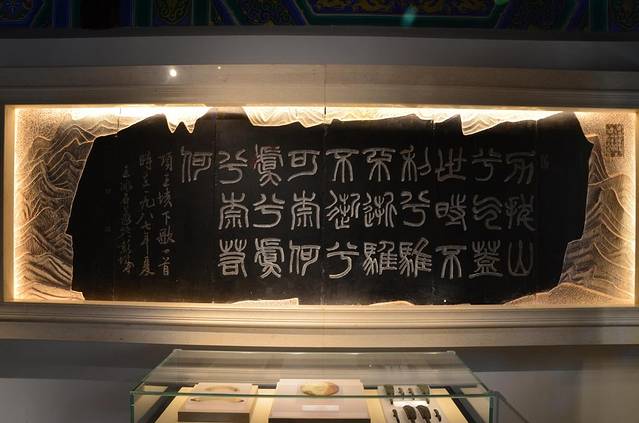 力拔山
兮气蓋
世時不
利兮騅
不逝騅
不逝兮
可奈何
虞兮虞
兮奈若
何
項王垓下歌一首
時在一九八七年夏